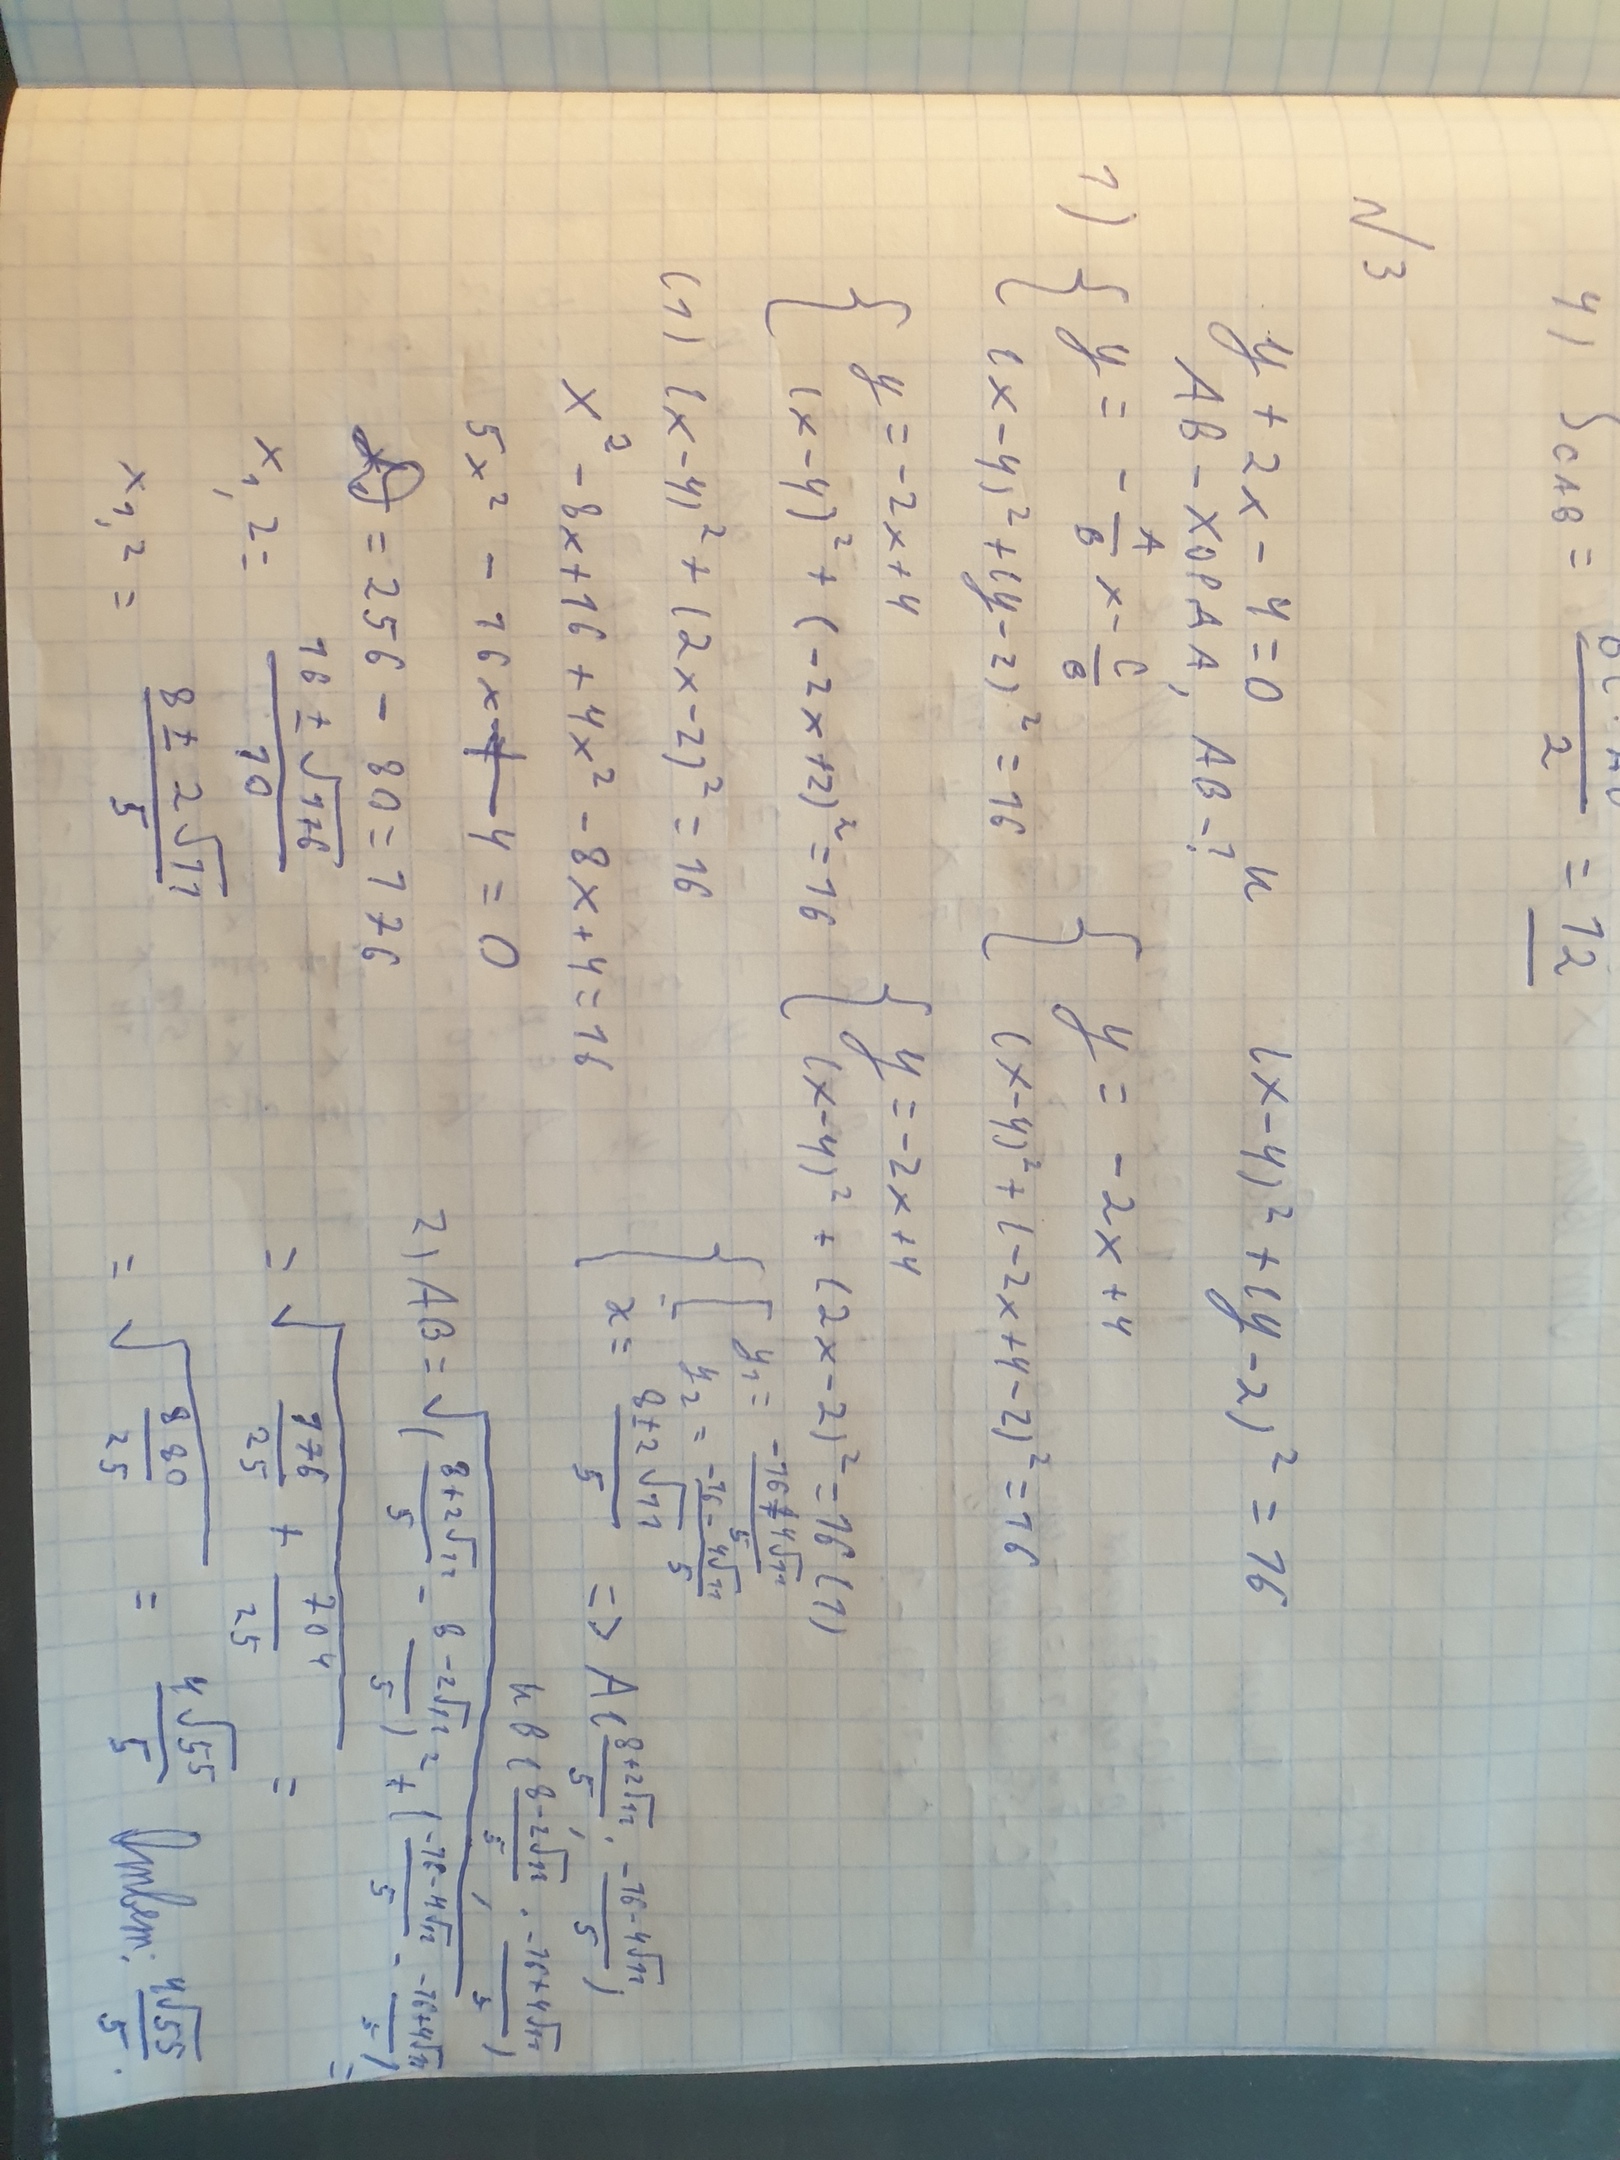 4) S_CAB = (BC · AD)/2 = 12
№3
y + 2x - 4 = 0 и (x-4)² + (y-2)² = 16
AB - ХОРДА, AB - ?
1) { y = -A/B x - C/B { y = -2x+4
(x-4)² + (y-2)² = 16 (x-4)² + (-2x+4-2)² = 16
{ y = -2x+4 { y = -2x+4
(x-4)² + (-2x+2)² = 16 (x-4)² + (2x-2)² = 16 (1)
(1) (x-4)² + (2x-2)² = 16
x² - 8x + 16 + 4x² - 8x + 4 = 16
5x² - 16x + 4 = 0
D = 256 - 80 = 176
x1,2 = (16 ± √176)/10
x1,2 = (8 ± 2√11)/5
{ [ y1 = (-16+4√11)/5
y2 = (-16-4√11)/5
x = (8±2√11)/5 => A((8+2√11)/5; (-16-4√11)/5)
и B((8-2√11)/5; (-16+4√11)/5)
2) AB = √(((8+2√11)/5 - (8-2√11)/5)² + ((-16-4√11)/5 - (-16+4√11)/5) =
= √(176/25 + 704/25) =
= √(880/25) = 4√55/5 Ответ: 4√55/5.